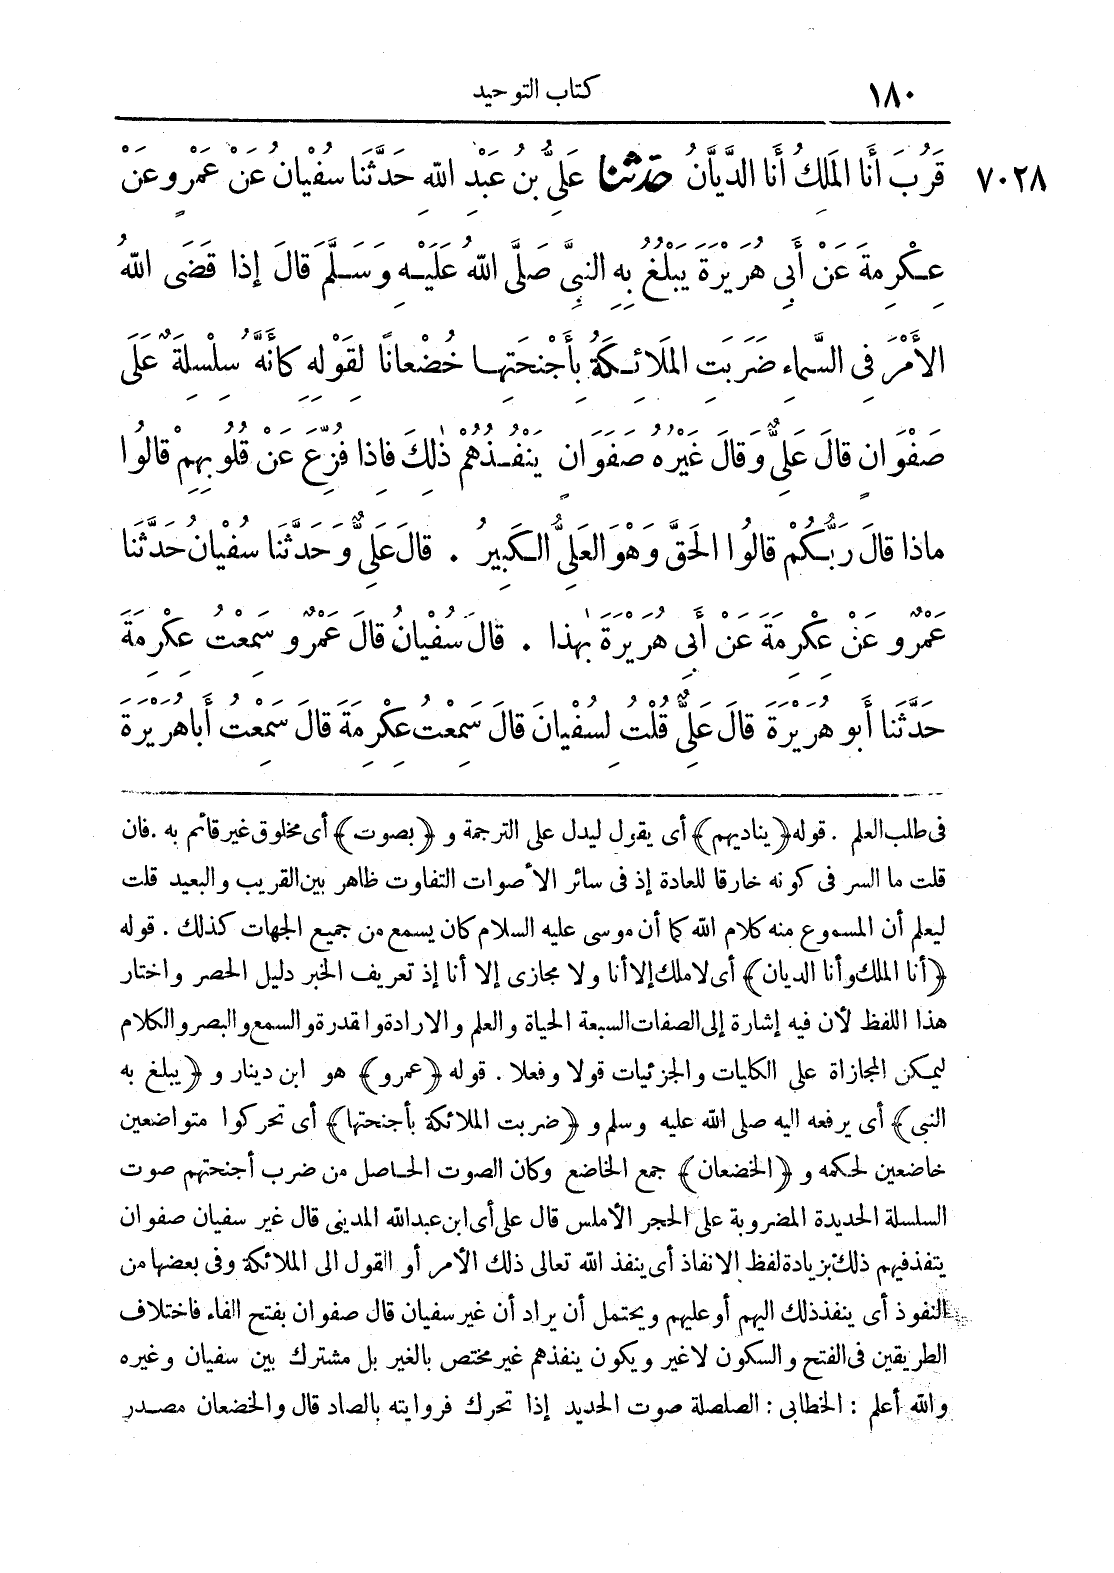 ١٨٠
كتاب التوحيد
٧٠٢٨
قَرُبَ أَنَا المَلِكُ أَنَا الدَّيَّانُ حَدَّثَنَا عَلِيُّ بنُ عَبْدِ اللهِ حَدَّثَنَا سُفْيانُ عَنْ عَمْرٍو عَنْ
عِكْرِمةَ عَنْ أَبِى هُرَيْرَةَ يَبْلُغُ بِهِ النبِيَّ صَلَّى اللهُ عَلَيْهِ وَسَلَّمَ قالَ إذا قَضَى اللهُ
الأَمْرَ فِى السَّماءِ ضَرَبَتِ المَلَائِكَةُ بِأَجْنِحَتِها خُضْعانًا لِقَوْلِهِ كَأَنَّهُ سِلْسِلَةٌ عَلَى
صَفْوانٍ قالَ عَلِيٌّ وَقالَ غَيْرُهُ صَفَوانٍ يَنْفُذُهُمْ ذٰلِكَ فاذا فُزِّعَ عَنْ قُلُوبِهِمْ قالُوا
ماذا قالَ رَبُّكُمْ قالُوا الحَقَّ وَهْوَ العَلِيُّ الكَبِيرُ . قالَ عَلِيٌّ وَحَدَّثَنَا سُفْيانُ حَدَّثَنَا
عَمْرٌو عَنْ عِكْرِمَةَ عَنْ أَبِى هُرَيْرَةَ بِهٰذا . قالَ سُفْيانُ قالَ عَمْرٌو سَمِعْتُ عِكْرِمَةَ
حَدَّثَنَا أَبو هُرَيْرَةَ قالَ عَلِيٌّ قُلْتُ لِسُفْيانَ قالَ سَمِعْتُ عِكْرِمَةَ قالَ سَمِعْتُ أَباهُرَيْرَةَ
فى طلب العلم . قوله ﴿يناديهم﴾ أى يقول ليدل على الترجمة و ﴿بصوت﴾ أى مخلوق غير قائم به . فان
قلت ما السر فى كونه خارقا للعادة إذ فى سائر الأصوات التفاوت ظاهر بين القريب والبعيد قلت
ليعلم أن المسموع منه كلام الله كما أن موسى عليه السلام كان يسمع من جميع الجهات كذلك . قوله
﴿أنا الملك وأنا الديان﴾ أى لا ملك إلا أنا ولا مجازى إلا أنا إذ تعريف الخبر دليل الحصر واختار
هذا اللفظ لأن فيه إشارة إلى الصفات السبعة الحياة والعلم والارادة والقدرة والسمع والبصر والكلام
ليمكن المجازاة على الكليات والجزئيات قولا وفعلا . قوله ﴿عمرو﴾ هو ابن دينار و ﴿يبلغ به
النبى﴾ أى يرفعه اليه صلى الله عليه وسلم و ﴿ضربت الملائكة بأجنحتها﴾ أى تحركوا متواضعين
خاضعين لحكمه و ﴿الخضعان﴾ جمع الخاضع وكان الصوت الحاصل من ضرب أجنحتهم صوت
السلسلة الحديدة المضروبة على الحجر الأملس قال على أى ابن عبدالله المدينى قال غير سفيان صفوان
ينفذفيهم ذلك بزيادة لفظ الانفاذ أى ينفذ الله تعالى ذلك الأمر أو القول الى الملائكة وفى بعضها من
النفوذ أى ينفذذلك اليهم أو عليهم ويحتمل أن يراد أن غير سفيان قال صفوان بفتح الفاء فاختلاف
الطريقين فى الفتح والسكون لا غير ويكون ينفذهم غير مختص بالغير بل مشترك بين سفيان وغيره
والله أعلم : الخطابى : الصلصلة صوت الحديد إذا تحرك فروايته بالصاد قال والخضعان مصدر